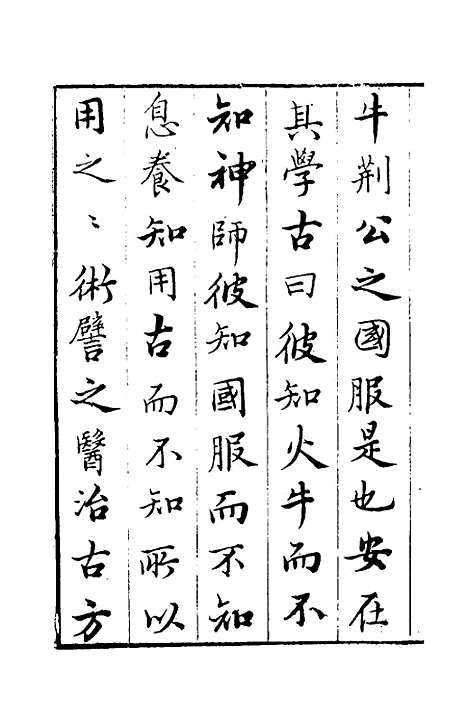 牛荆公之國服是也安在
其學古曰彼知火牛而不
知神師彼知國服而不知
息養知用古而不知所以
用之〻術譬之醫治古方